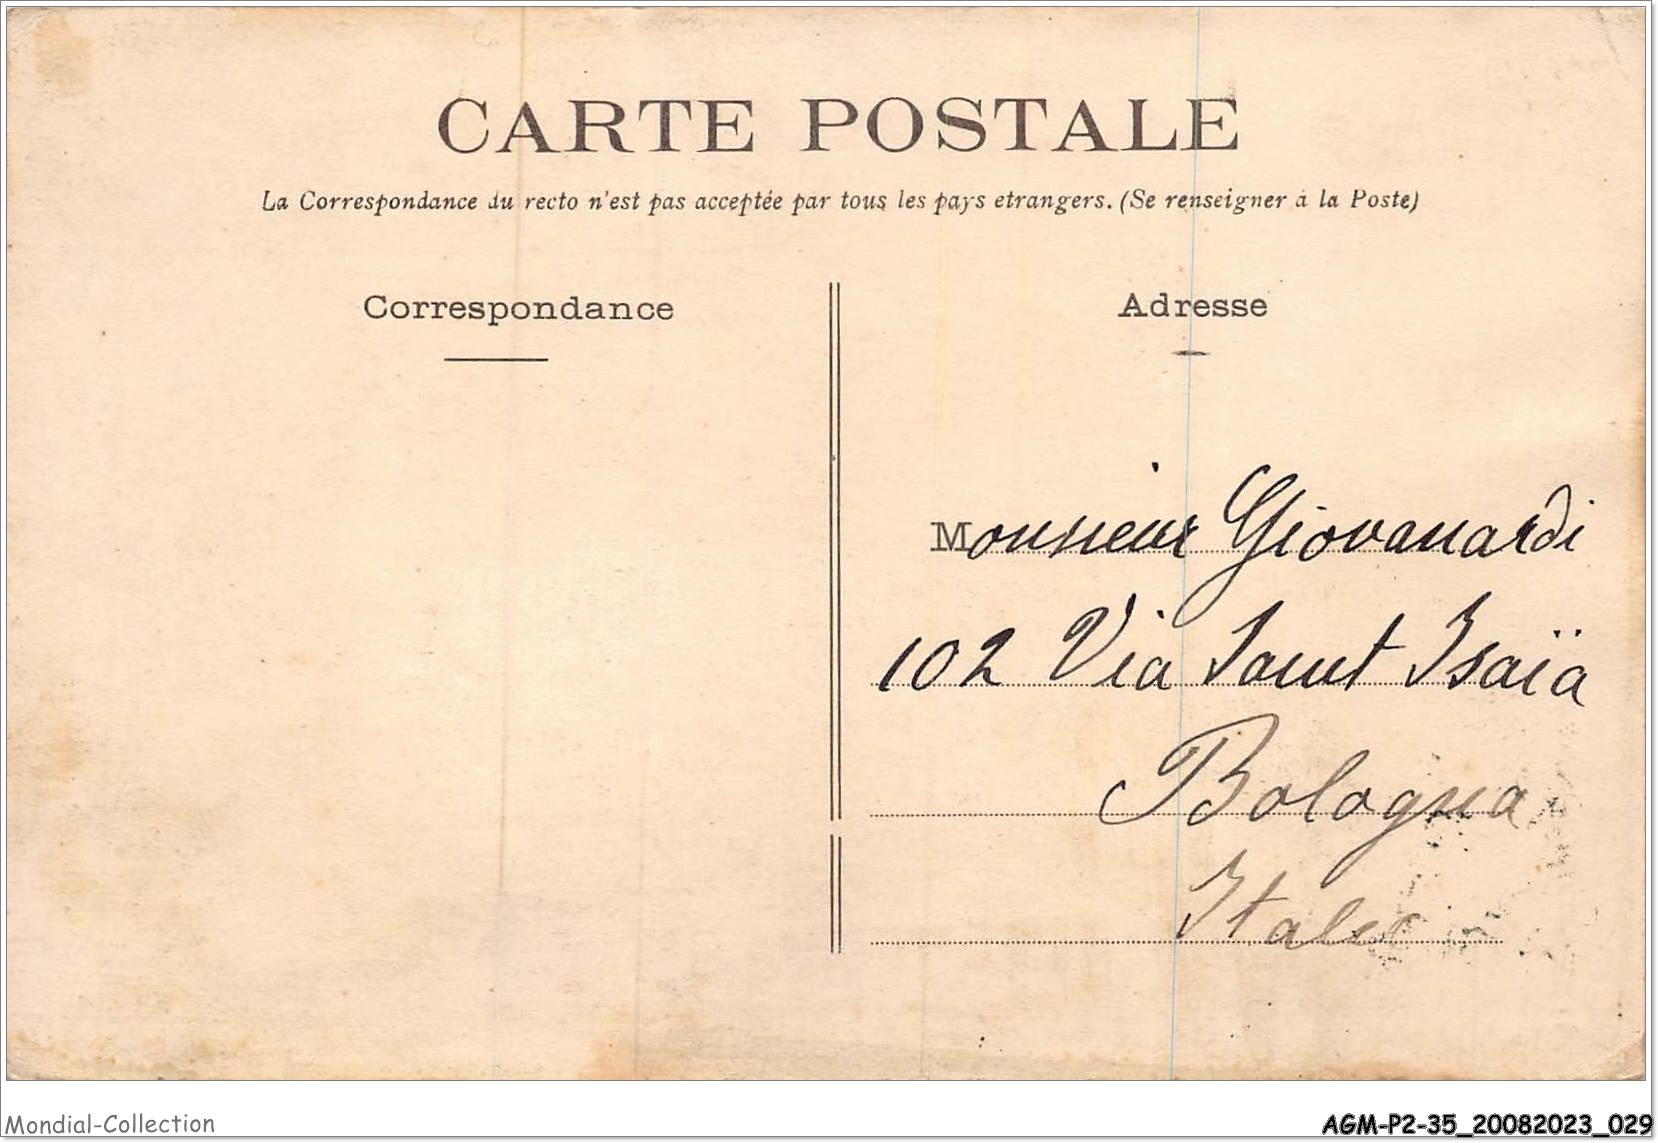 CARTE POSTALE
La Correspondance du recto n'est pas acceptée par tous les pays etrangers. (Se renseigner à la Poste)
Correspondance
Adresse
Monsieur Giovanardi
102 Via Saint Isaïa
Bologna
Italie
Mondial-Collection
AGM-P2-35_20082023_029